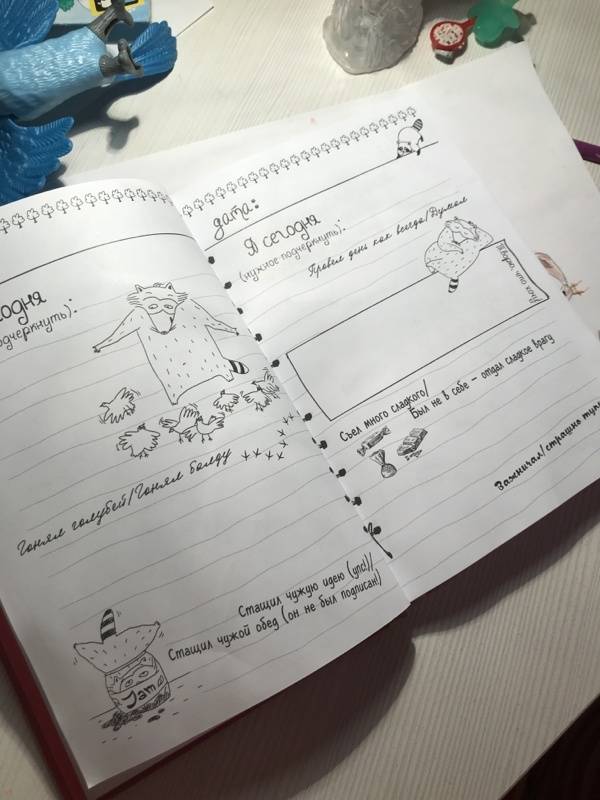 одня
одчеркнуть):
Гонял голубей/Гонял балду
Стащил чужую идею (упс!)/
Стащил чужой обед (он не был подписан!)
Jam
дата:
Я сегодня
(нужное подчеркнуть):
Провел день как всегда/Думал
Съел много сладкого/
Был не в себе – отдал сладкое врагу
Зажничал/страшно тупи